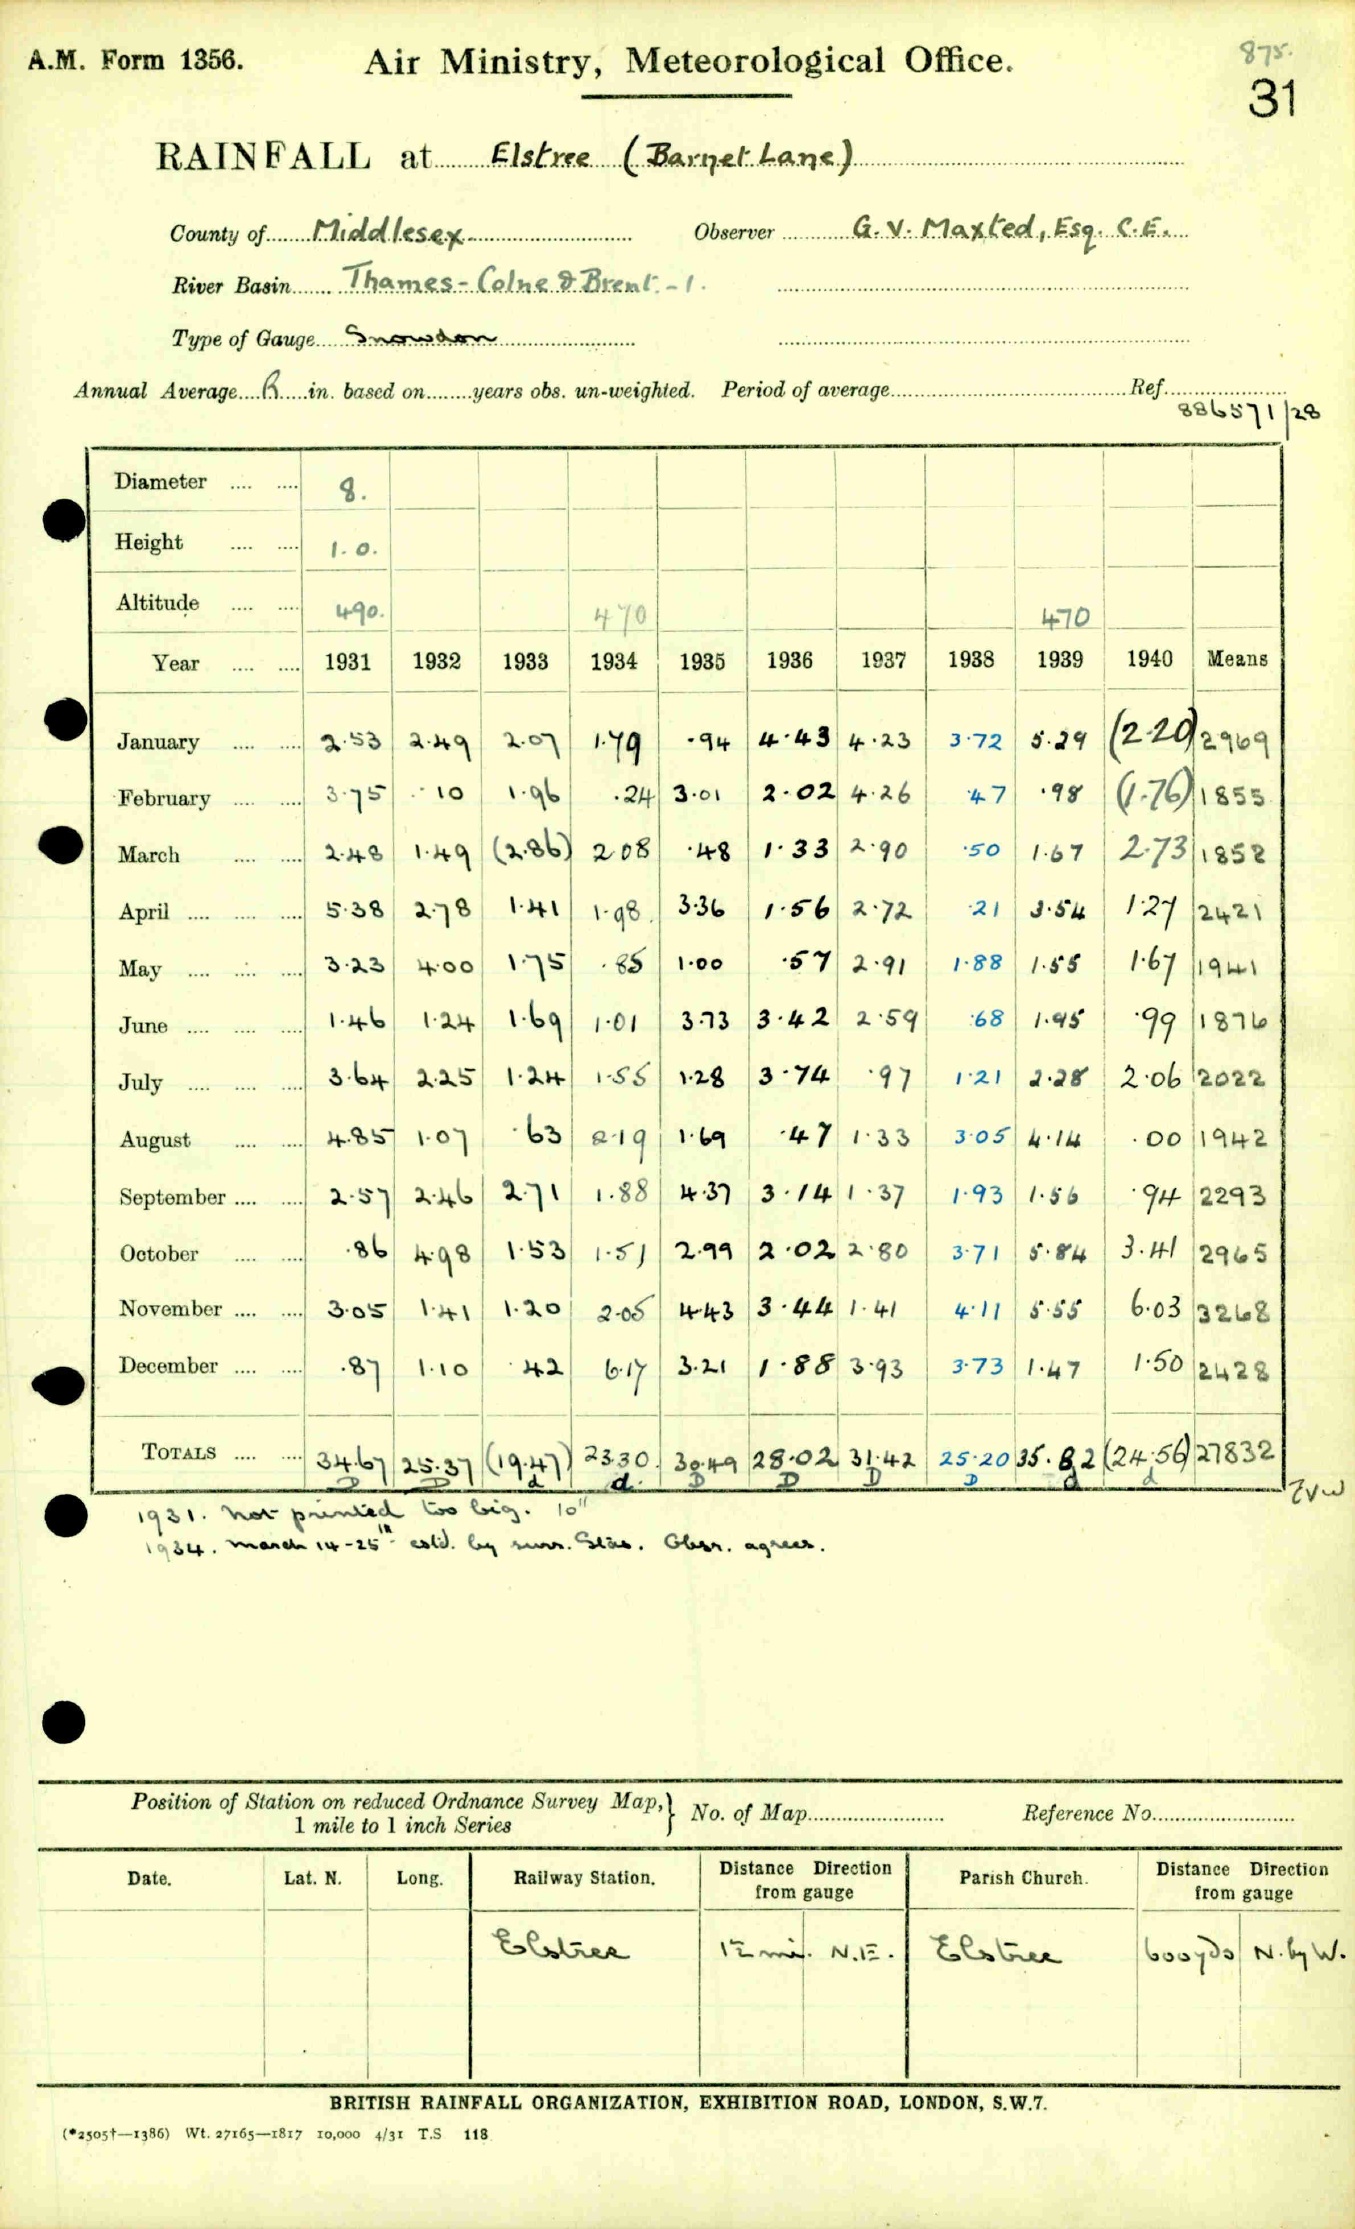 A.M. Form 1356.
Air Ministry, Meteorological Office.
875.
31
RAINFALL at Elstree (Barnet Lane)
County of Middlesex Observer G. V. Maxted, Esq. C.E.
River Basin Thames - Colne & Brent - 1.
Type of Gauge Snowdon
Annual Average R in. based on years obs. un-weighted. Period of average Ref.
886571/28
Diameter .... .... 8.
Height .... .... 1.0.
Altitude .... .... 490. 470 470
Year .... .... 1931 1932 1933 1934 1935 1936 1937 1938 1939 1940 Means
January .... .... 2.53 2.49 2.07 1.79 .94 4.43 4.23 3.72 5.29 (2.20) 2969
February .... .... 3.75 .10 1.96 .24 3.01 2.02 4.26 .47 .98 (1.76) 1855
March .... .... 2.48 1.49 (2.86) 2.08 .48 1.33 2.90 .50 1.67 2.73 1852
April .... .... .... 5.38 2.78 1.41 1.98 3.36 1.56 2.72 .21 3.54 1.27 2421
May .... .... .... 3.23 4.00 1.75 .85 1.00 .57 2.91 1.88 1.55 1.67 1941
June .... .... .... 1.46 1.24 1.69 1.01 3.73 3.42 2.59 .68 1.95 .99 1876
July .... .... .... 3.64 2.25 1.24 1.55 1.28 3.74 .97 1.21 2.28 2.06 2022
August .... .... 4.85 1.07 .63 2.19 1.69 .47 1.33 3.05 4.14 .00 1942
September .... .... 2.57 2.46 2.71 1.88 4.37 3.14 1.37 1.93 1.56 .94 2293
October .... .... .86 4.98 1.53 1.51 2.99 2.02 2.80 3.71 5.84 3.41 2965
November .... .... 3.05 1.41 1.20 2.05 4.43 3.44 1.41 4.11 5.55 6.03 3268
December .... .... .87 1.10 .42 6.17 3.21 1.88 3.93 3.73 1.47 1.50 2428
TOTALS .... .... 34.67 25.37 (19.47) 23.30 30.49 28.02 31.42 25.20 35.82 (24.56) 27832
D D d d. D D D D d d
1931. Not printed too big. 10"
1934. March 14-25th estd. by surr. Stas. Obsr. agrees.
Position of Station on reduced Ordnance Survey Map,} No. of Map Reference No.
1 mile to 1 inch Series
Date. Lat. N. Long. Railway Station. Distance Direction from gauge Parish Church. Distance Direction from gauge
Elstree 1½ mi. N.E. Elstree 600 yds N. by W.
BRITISH RAINFALL ORGANIZATION, EXHIBITION ROAD, LONDON, S.W.7.
(*2505†—1386) Wt. 27165—1817 10,000 4/31 T.S 118